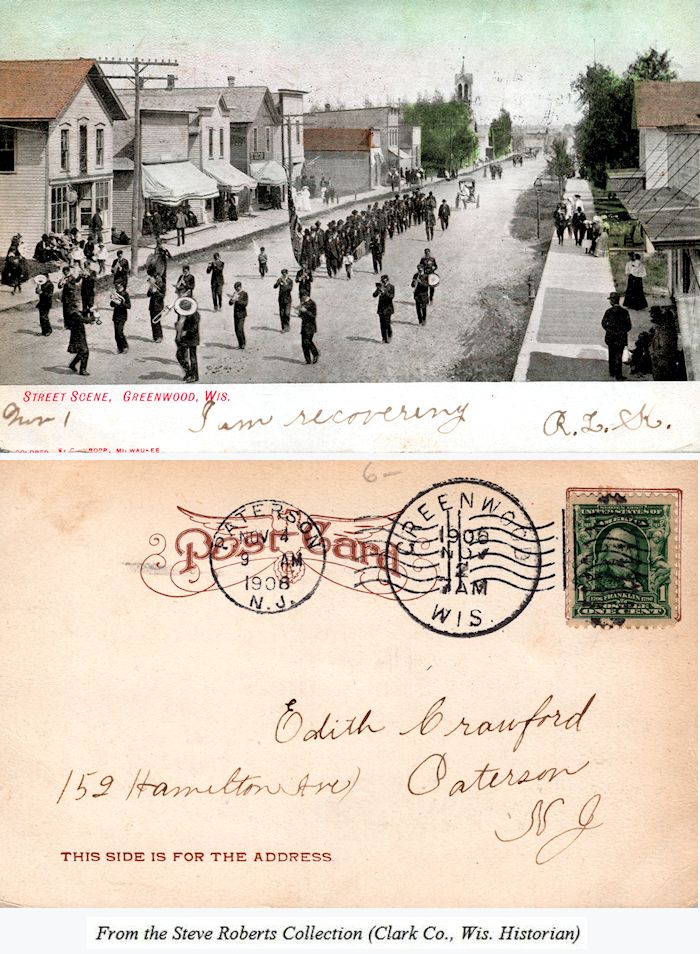 STREET SCENE, GREENWOOD, WIS.
Nov 1 I am recovering R.L.K.
MILWAUKEE
6-
Post Card
PATERSON
NOV 4
9 AM
1906
N.J.
GREENWOOD
1906
NOV
2
AM
WIS.
UNITED STATES OF
AMERICA
1 FRANKLIN 1
ONE CENT
Edith Crawford
152 Hamilton Ave Paterson
N J
THIS SIDE IS FOR THE ADDRESS.
From the Steve Roberts Collection (Clark Co., Wis. Historian)